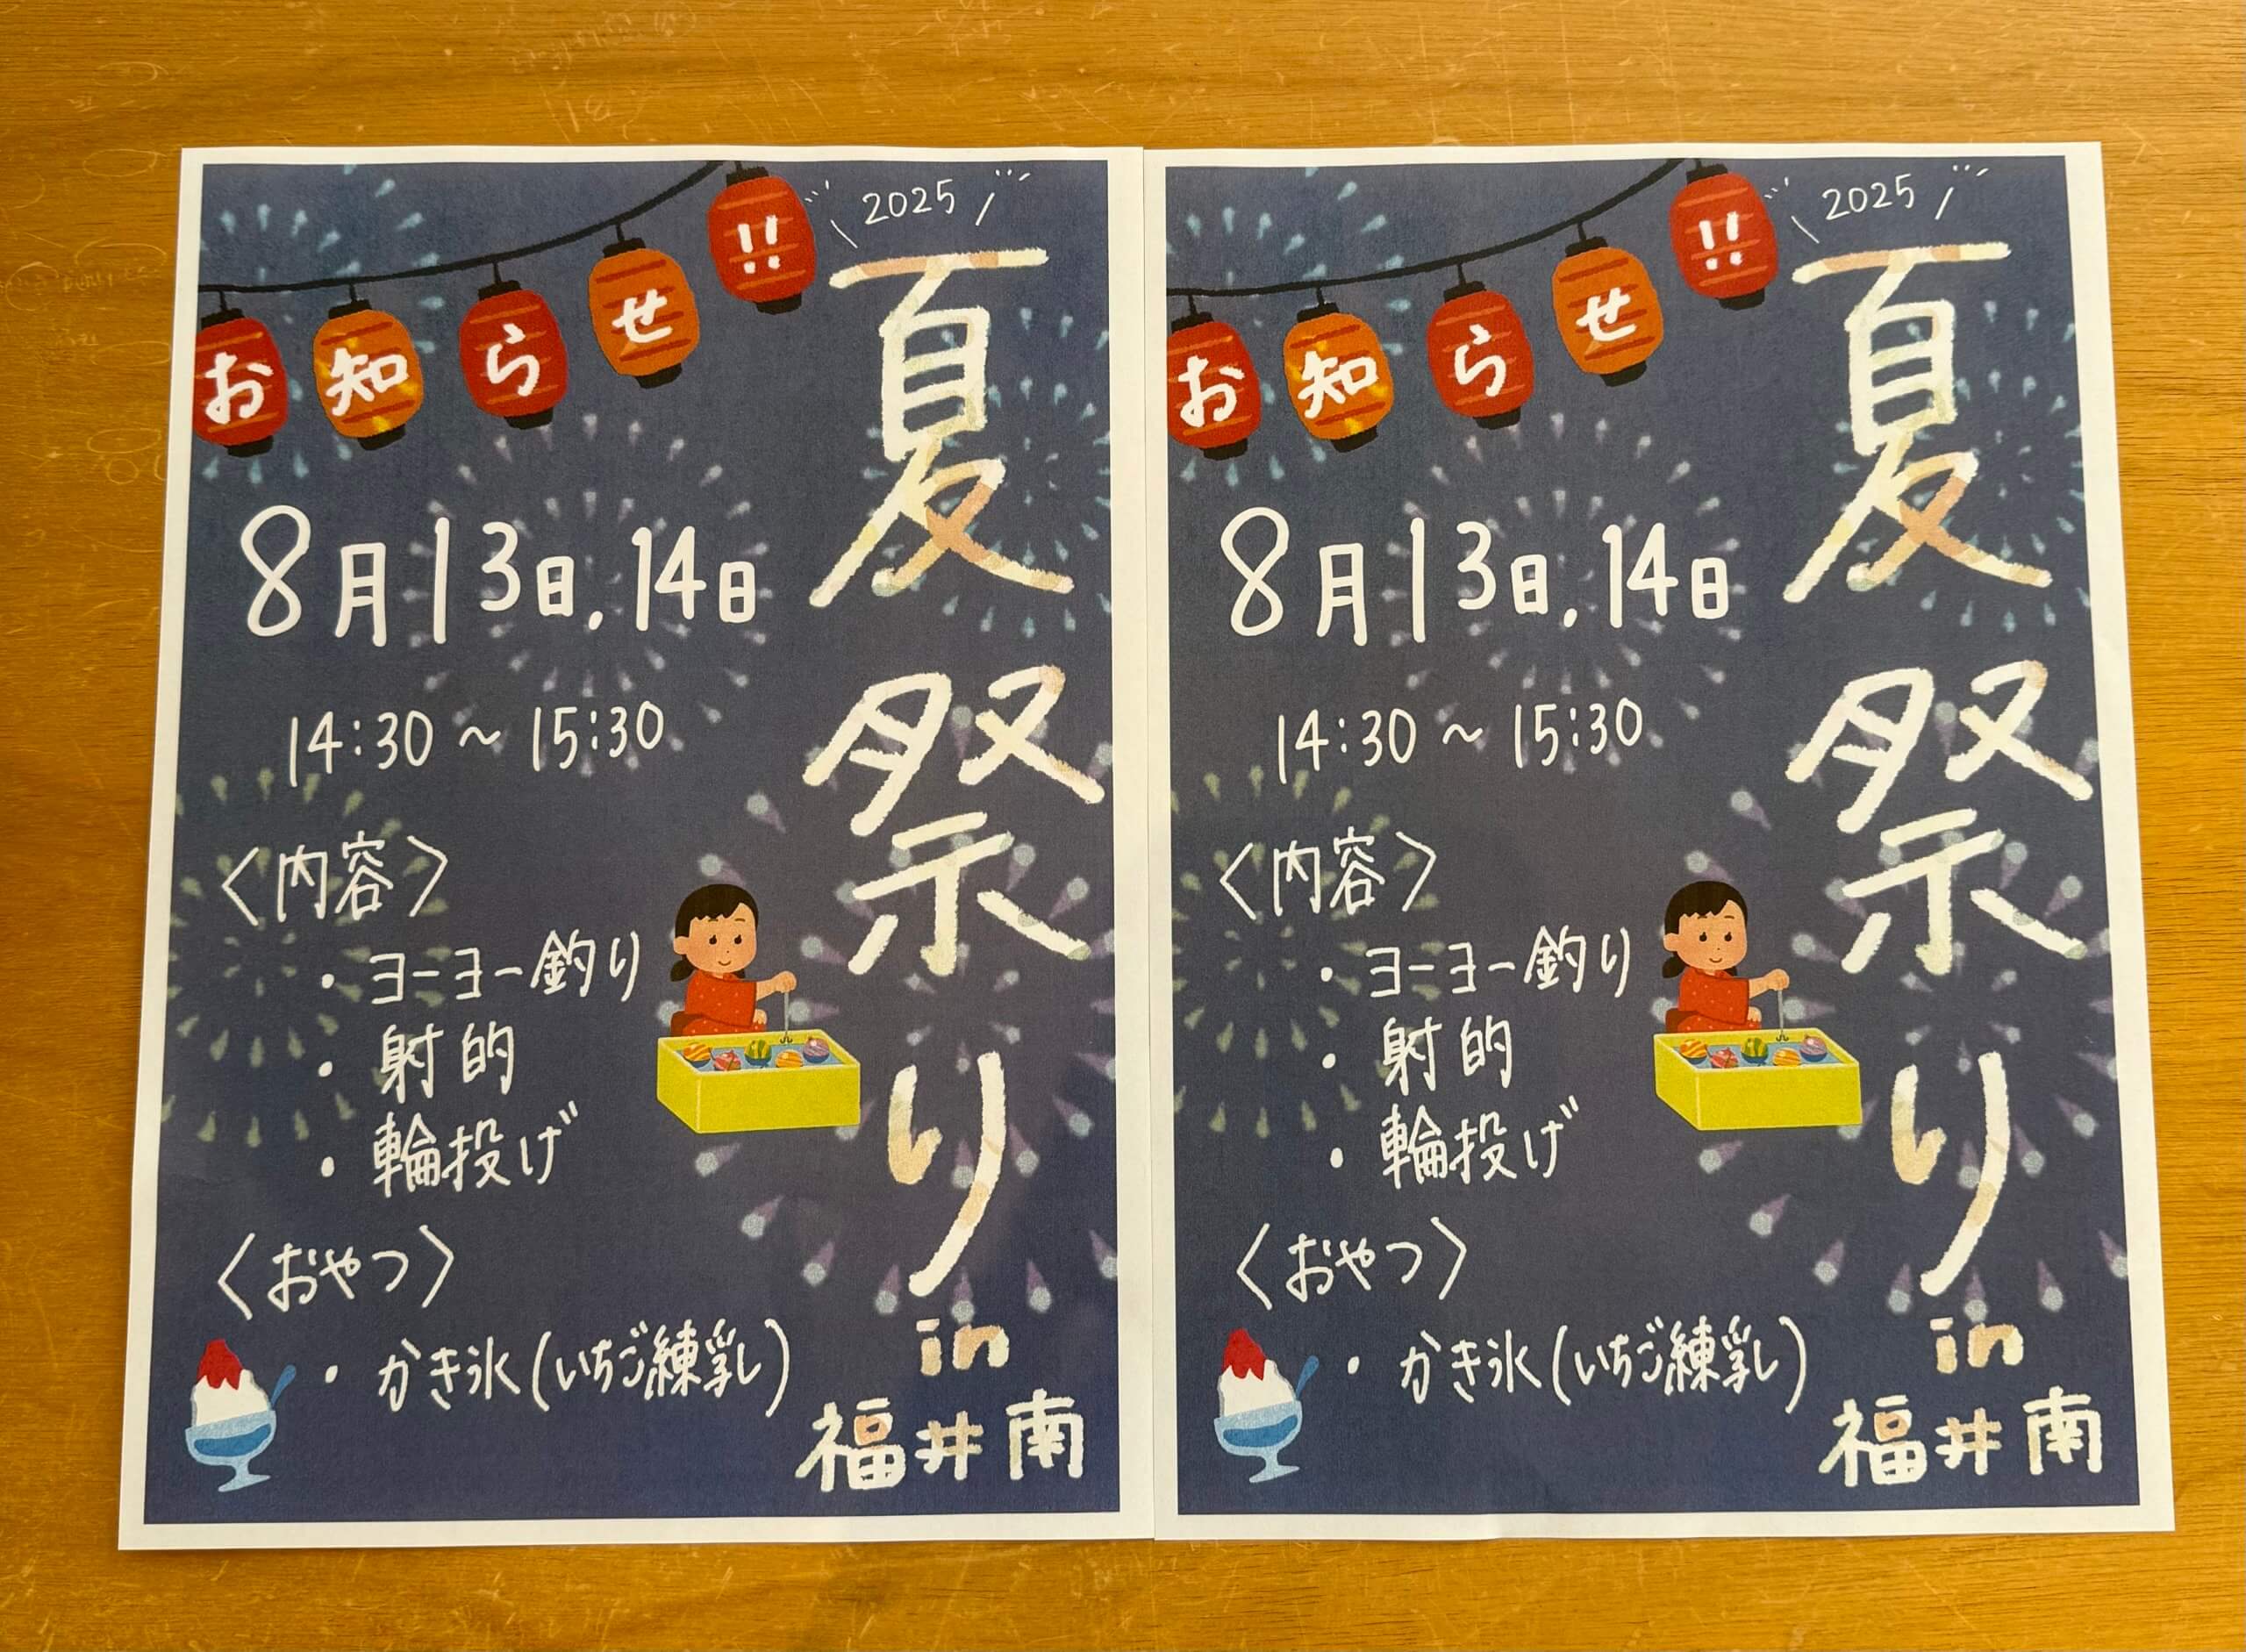 お知らせ!!
2025
夏祭り
in
福井南
8月13日.14日
14:30～15:30
〈内容〉
・ヨーヨー釣り
・射的
・輪投げ
〈おやつ〉
・かき氷(いちご練乳)
お知らせ!!
2025
夏祭り
in
福井南
8月13日.14日
14:30～15:30
〈内容〉
・ヨーヨー釣り
・射的
・輪投げ
〈おやつ〉
・かき氷(いちご練乳)